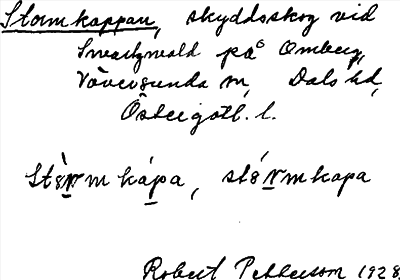 Stormkappan, skyddsskog vid
Svartzwald på Omberg,
Väversunda sn, Dals hd,
Östergötl. l.
stòrmkápa, stórmkapa
Robert Pettersson 1928.